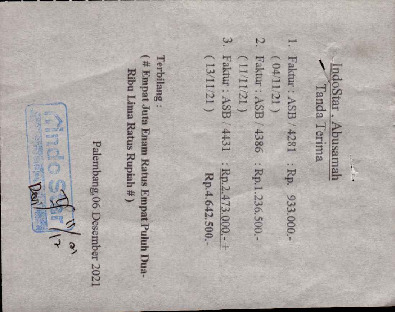 IndoStar . Abusamah
Tanda Terima
1. Faktur : ASB / 4281 : Rp. 933.000,-
( 04/11/21 )
2. Faktur : ASB / 4386 : Rp.1.236.500,-
( 11/11/21 )
3. Faktur : ASB / 4431 : Rp.2.473.000,- +
( 13/11/21 ) Rp.4.642.500,-
Terbilang :
( # Empat Juta Enam Ratus Empat Puluh Dua-
Ribu Lima Ratus Rupiah # )
Palembang,06 Desember 2021
Indo Star